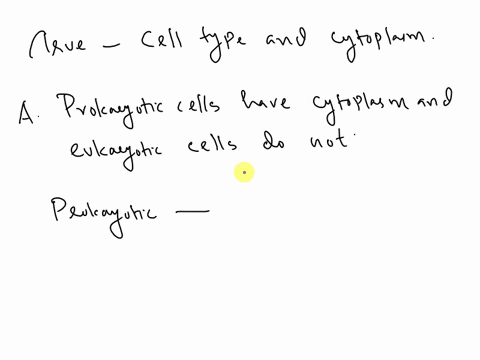 True - Cell type and cytoplasm.
A. Prokaryotic cells have cytoplasm and
eukaryotic cells do not.
Prokaryotic —